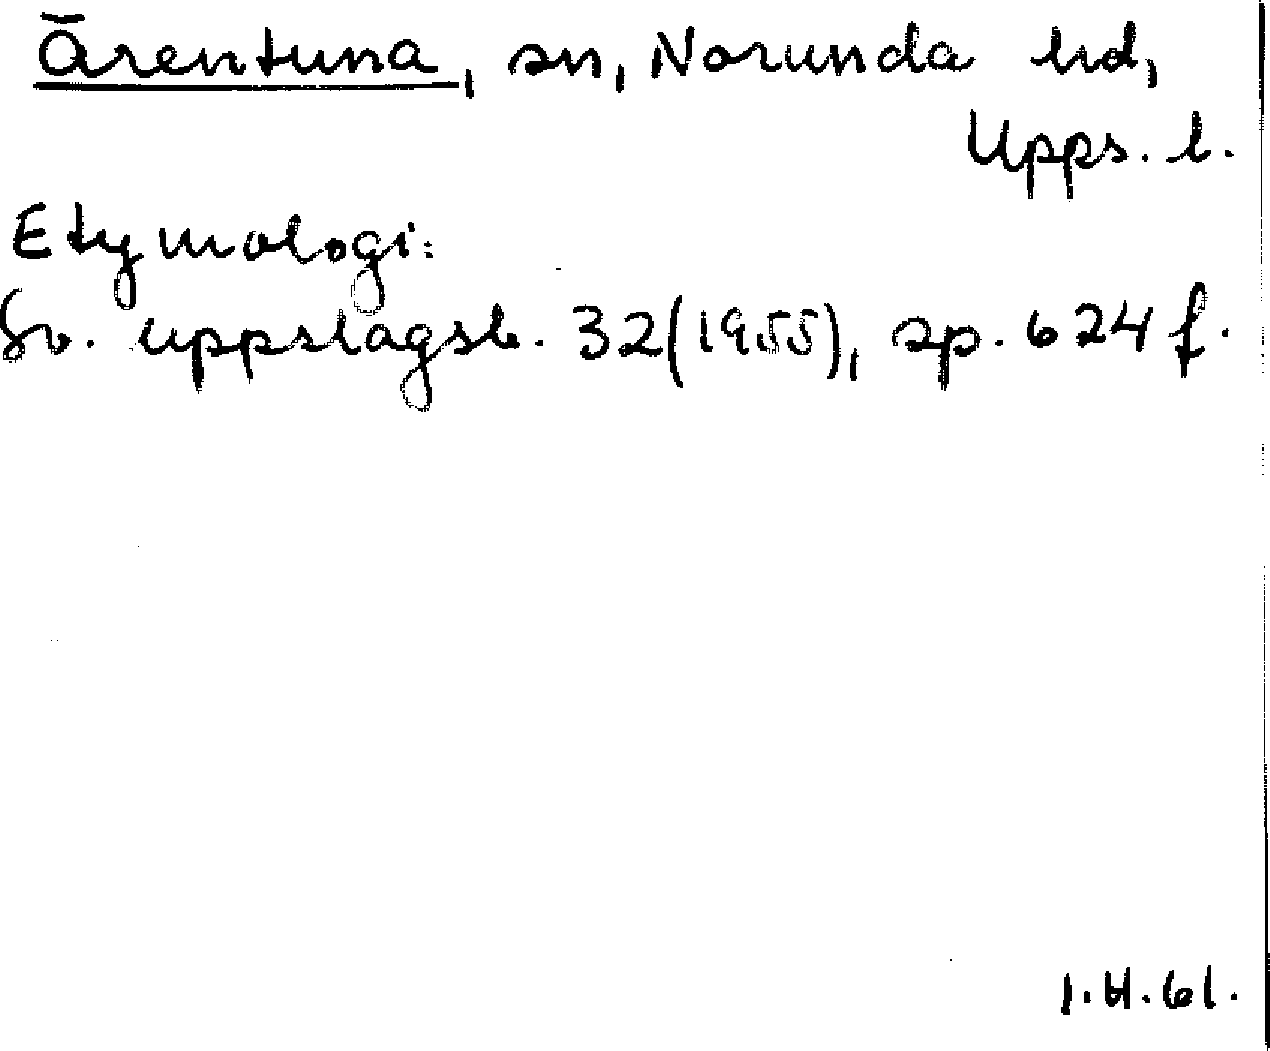 Ärentuna, sn, Norunda hd,
Upps. l.
Etymologi:
Sv. uppslagsb. 32(1955), sp. 624 f.
I.H.61.